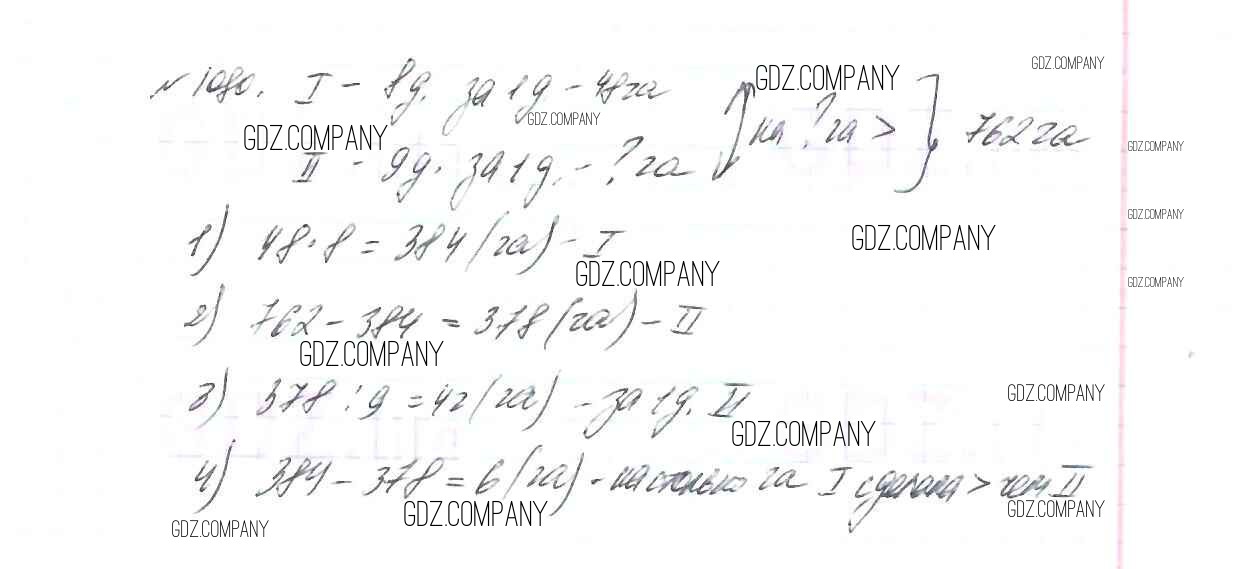 GDZ.COMPANY
№ 1080. I - 8д. за 1д - 48га
GDZ.COMPANY
GDZ.COMPANY
GDZ.COMPANY
на ? га > 762 га
GDZ.COMPANY
II - 9д. за 1д. - ? га
GDZ.COMPANY
1) 48·8 = 384 (га) - I
GDZ.COMPANY
GDZ.COMPANY
GDZ.COMPANY
2) 762 - 384 = 378 (га) - II
GDZ.COMPANY
3) 378 : 9 = 42 (га) - за 1д. II
GDZ.COMPANY
GDZ.COMPANY
4) 384 - 378 = 6 (га) - настолько га I сделала > чем II
GDZ.COMPANY
GDZ.COMPANY
GDZ.COMPANY